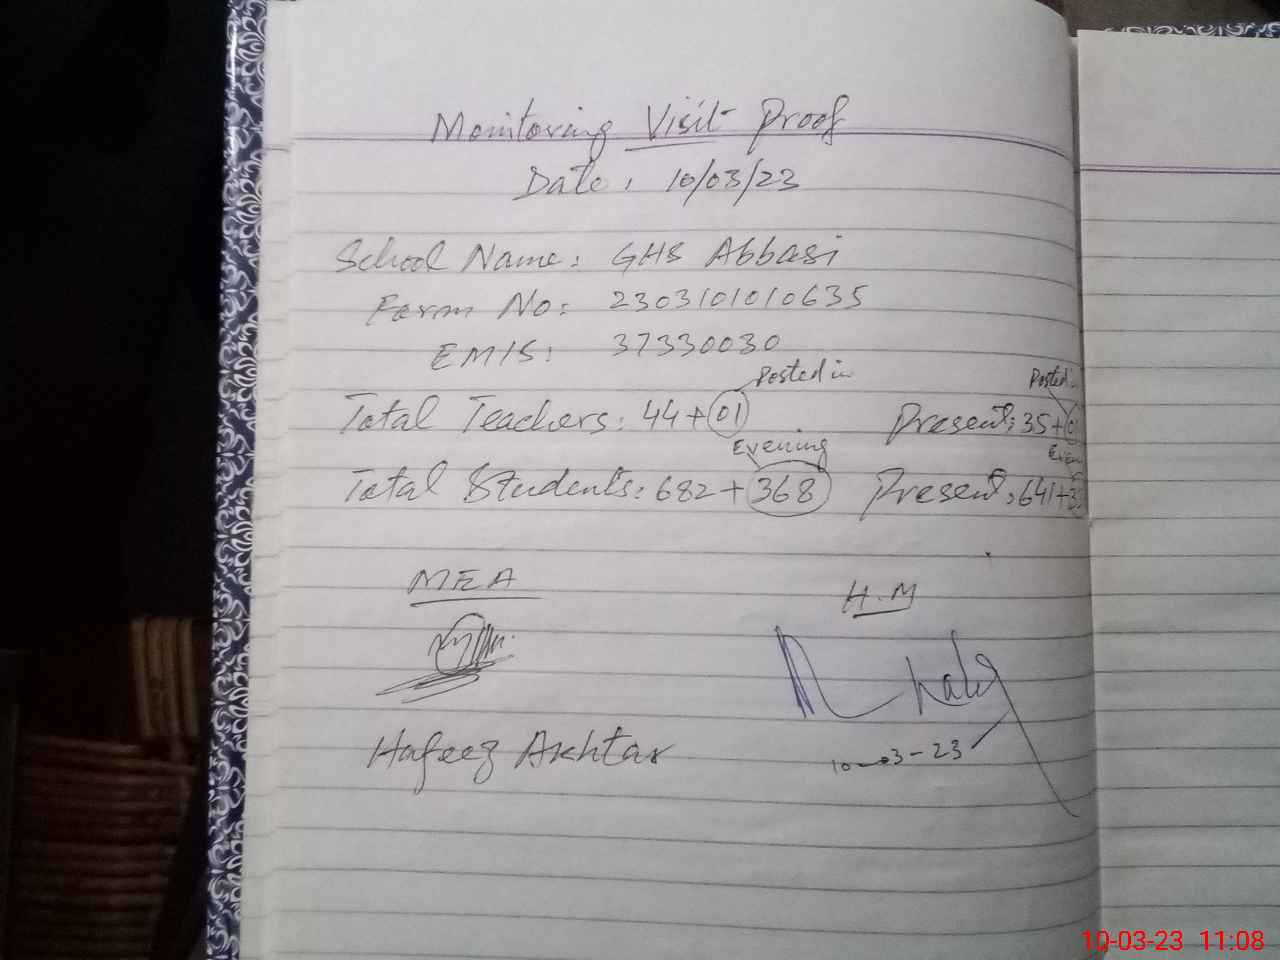 Monitoring Visit Proof
Date: 10/03/23
School Name: GHS Abbasi
Form No: 2303101010635
EMIS: 37330030
Posted in Posted
Total Teachers: 44+01 Present: 35+
Evening Even
Total Students: 682+368 Present: 641+3
MEA H.M
Hafeez Akhtar
10-03-23
10-03-23 11:08